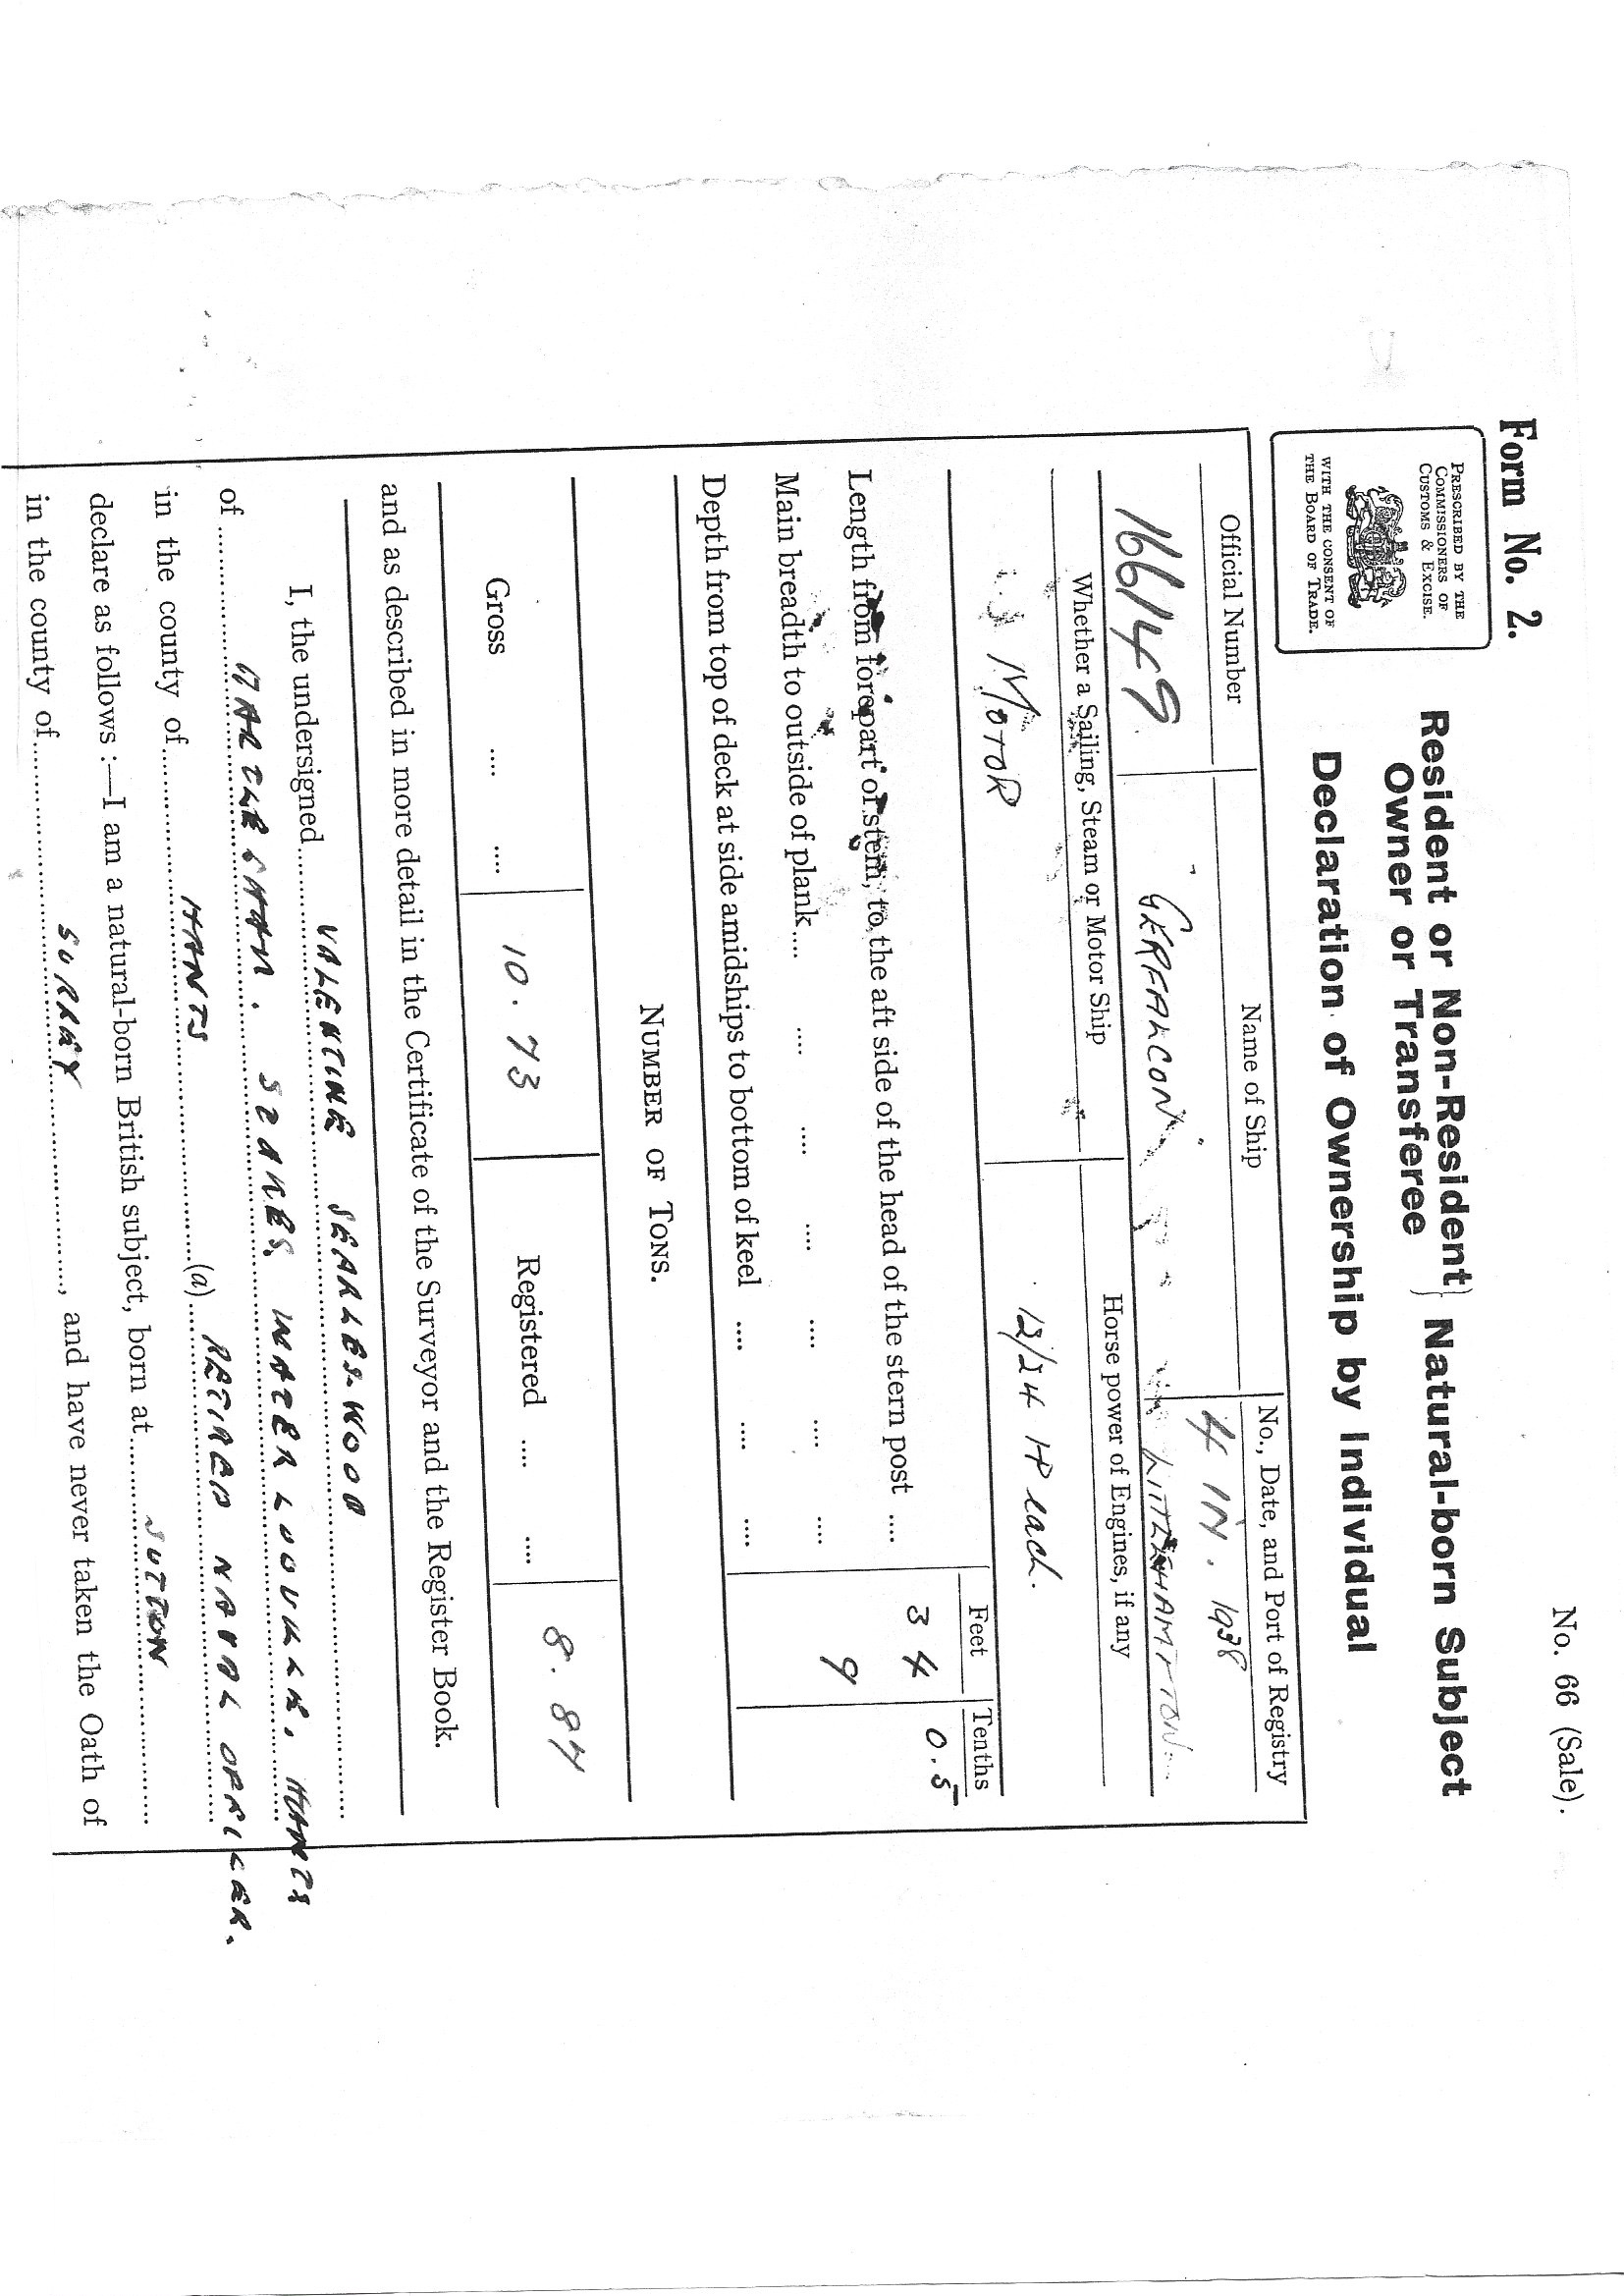 No. 66 (Sale).
Form No. 2.
PRESCRIBED BY THE
COMMISSIONERS OF
CUSTOMS & EXCISE.
WITH THE CONSENT OF
THE BOARD OF TRADE.
Resident or Non-Resident } Natural-born Subject
Owner or Transferee
Declaration of Ownership by Individual
Official Number Name of Ship No., Date, and Port of Registry
166149 GERFALCON 4 IN. 1938
LITTLEHAMPTON
Whether a Sailing, Steam or Motor Ship Horse power of Engines, if any
MOTOR 12/24 HP each.
Feet Tenths
Length from forepart of stem, to the aft side of the head of the stern post .... 34 0.5
Main breadth to outside of plank.... .... .... .... .... .... .... 9
Depth from top of deck at side amidships to bottom of keel .... .... ....
NUMBER OF TONS.
Gross .... .... 10.73 Registered .... .... 8.84
and as described in more detail in the Certificate of the Surveyor and the Register Book.
I, the undersigned VALENTINE SEARLES-WOOD
of MARCHESHAM. WATERLOOVILLE. HANTS
in the county of HANTS (a) RETIRED NAVAL OFFICER.
declare as follows :—I am a natural-born British subject, born at SUTTON
in the county of SURREY, and have never taken the Oath of